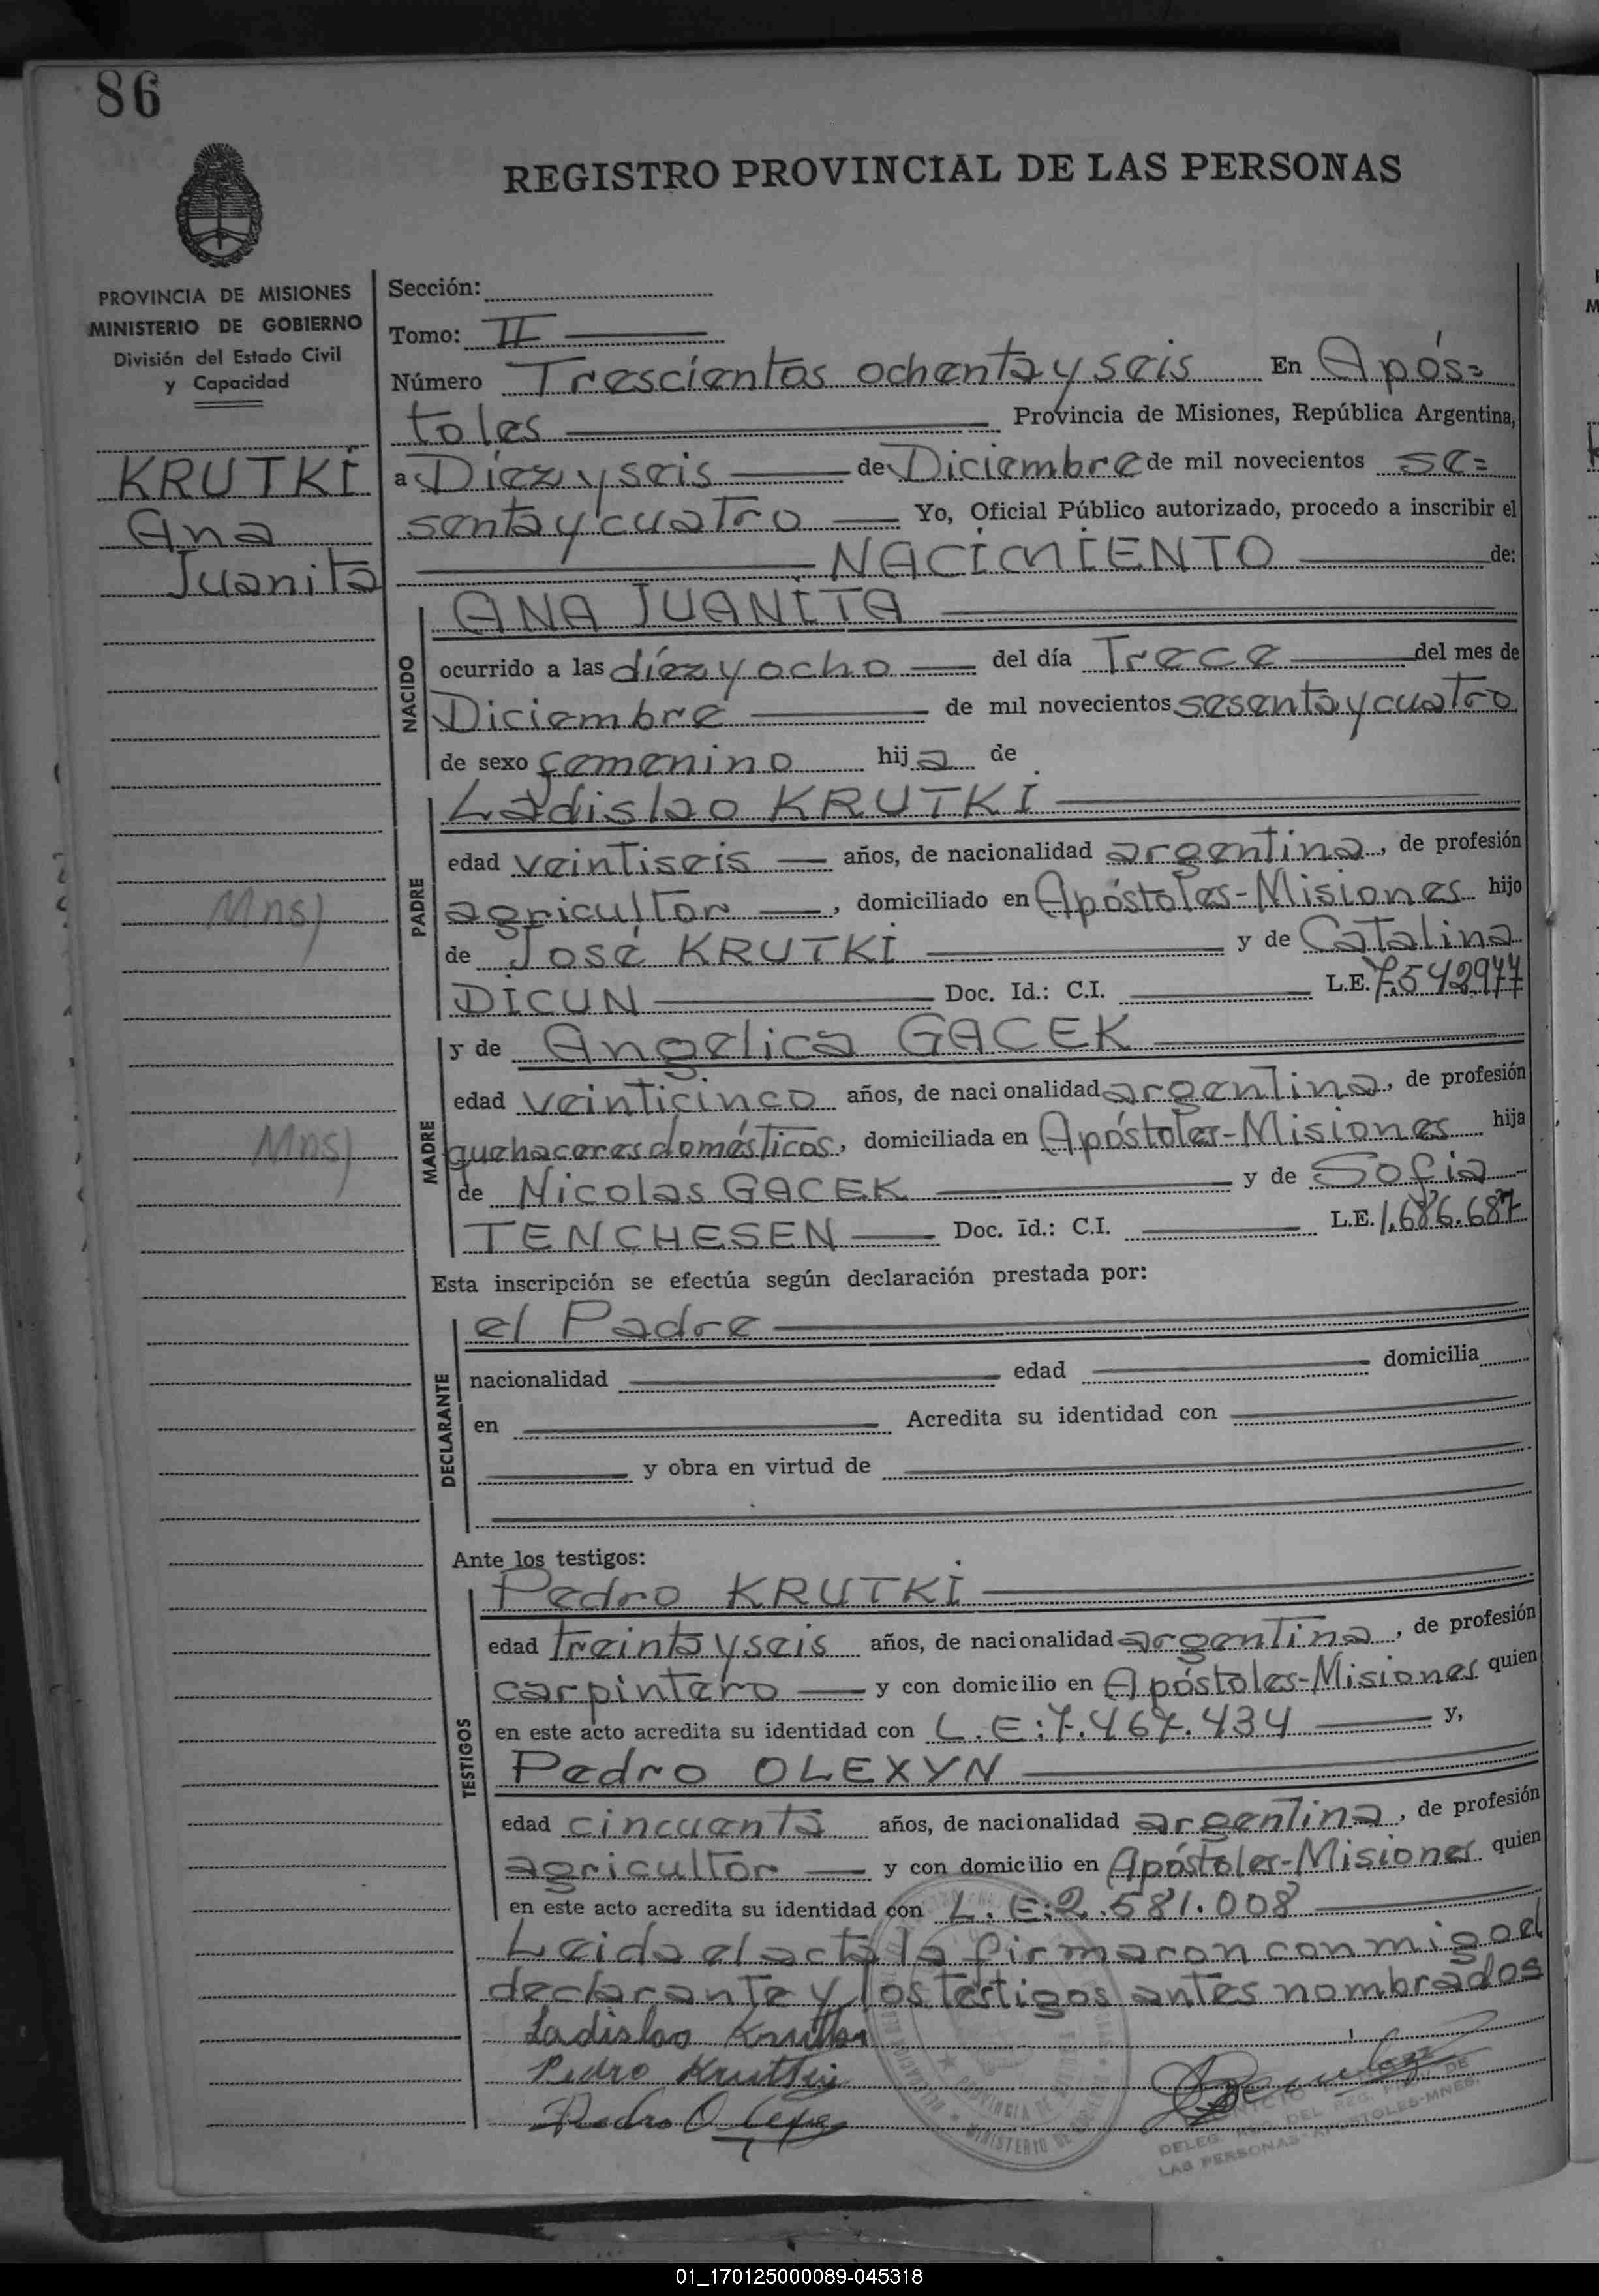 86
REGISTRO PROVINCIAL DE LAS PERSONAS
PROVINCIA DE MISIONES
MINISTERIO DE GOBIERNO
División del Estado Civil
y Capacidad
KRUTKI
Ana
Juanita
Mns)
Mns)
Sección:
Tomo: II
Número Trescientos ochenta y seis En Após=
toles Provincia de Misiones, República Argentina,
a Diez y seis de Diciembre de mil novecientos se=
senta y cuatro Yo, Oficial Público autorizado, procedo a inscribir el
NACIMIENTO de:
NACIDO
ANA JUANITA
ocurrido a las diez y ocho del día Trece del mes de
Diciembre de mil novecientos sesenta y cuatro
de sexo femenino hija de
PADRE
Ladislao KRUTKI
edad veintiseis años, de nacionalidad argentina, de profesión
agricultor, domiciliado en Apóstoles-Misiones hijo
de José KRUTKI y de Catalina
DICUN Doc. Id.: C.I. L.E. 7.542977
MADRE
y de Angelica GACEK
edad veinticinco años, de naci onalidad argentina, de profesión
quehaceres domésticos, domiciliada en Apóstoles-Misiones hija
de Nicolas GACEK y de Sofia
TENCHESEN Doc. Id.: C.I. L.E. 1.686.687
Esta inscripción se efectúa según declaración prestada por:
DECLARANTE
el Padre
nacionalidad edad domicilia
en Acredita su identidad con
y obra en virtud de
Ante los testigos:
TESTIGOS
Pedro KRUTKI
edad treinta y seis años, de nacionalidad argentina, de profesión
carpintero y con domicilio en Apóstoles-Misiones quien
en este acto acredita su identidad con L.E:7.467.434 y,
Pedro OLEXYN
edad cincuenta años, de nacionalidad argentina, de profesión
agricultor y con domicilio en Apóstoles-Misiones quien
en este acto acredita su identidad con L.E:2.581.008
Leida el acta la firmaron conmigo el
declarante y los testigos antes nombrados
Ladislao
Pedro
Pedro
PROVINCIA DE
MINISTERIO DE
DELEG. DEL REG. DE
LAS PERSONAS-APOSTOLES-MNES.
01_170125000089-045318